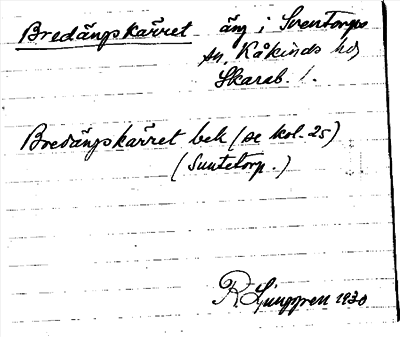 Bredängskärret äng i Sventorps
sn, Kåkinds hd
Skarab. l.
Bredängskärret bek (se kol. 25)
(Suntetorp.)
R Ljunggren 1930